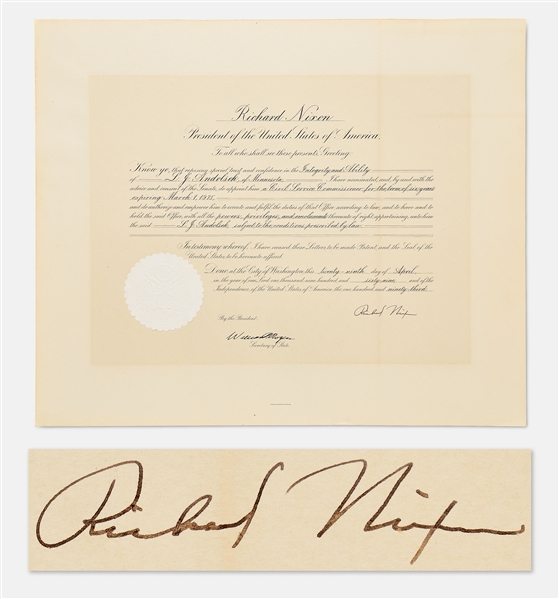 Richard Nixon
President of the United States of America.
To all who shall see these presents, Greeting:
Know ye, that reposing special trust and confidence in the Integrity and Ability
of L. J. Andolsek, of Minnesota, I have nominated, and, by and with the
advice and consent of the Senate, do appoint him a Civil Service Commissioner for the term of six years
expiring March 1, 1975, and do authorize and empower him to execute and fulfil the duties of that Office according to law, and to have and to
hold the said Office, with all the powers, privileges, and emoluments thereunto of right appertaining, unto him
the said L. J. Andolsek, subject to the conditions prescribed by law.
In testimony whereof, I have caused these Letters to be made Patent and the Seal of the
United States to be hereunto affixed.
Done at the City of Washington this twenty ninth day of April
in the year of our Lord one thousand nine hundred and sixty-nine and of the
Independence of the United States of America the one hundred and ninety-third.
Richard Nixon
By the President:
William P. Rogers
Secretary of State.
Richard Nixon